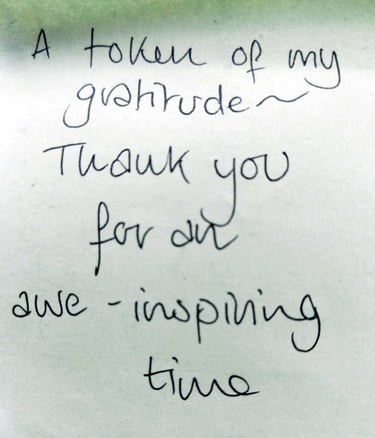 A token of my
gratitude~
Thank you
for an
awe-inspiring
time